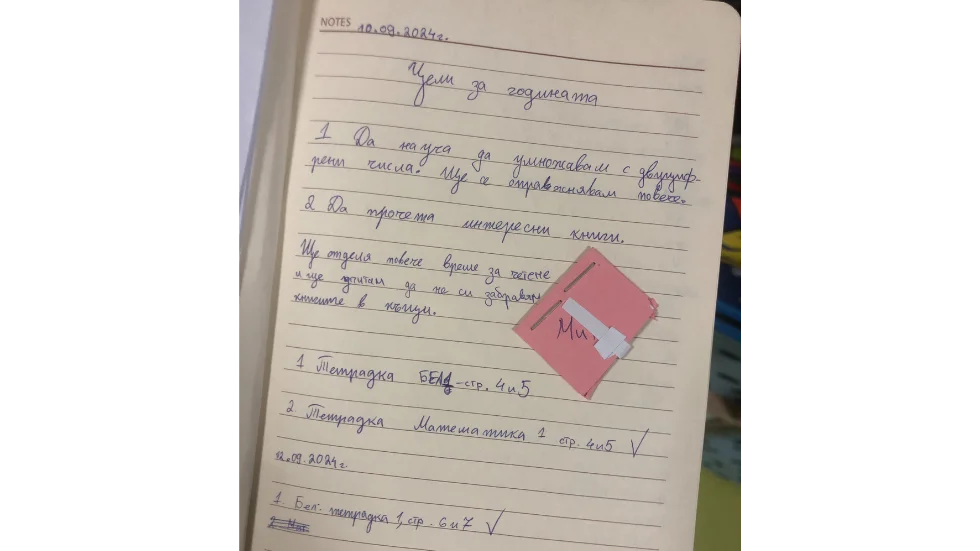 NOTES 10.09.2024г.
Цели за годината
1 Да науча да умножавам с двуциф-
рени числа. Ще се оправжнявам повече.
2 Да прочета интересни книги.
Ще отделя повече време за четене
и ще да не си забравям
книгите в къщи.
Ми
1 Тетрадка БЕЛ1 - стр. 4 и 5
2. Тетрадка Математика 1 стр. 4 и 5 ✓
12.09.2024г.
1. Бел. тетрадка 1, стр. 6 и 7 ✓